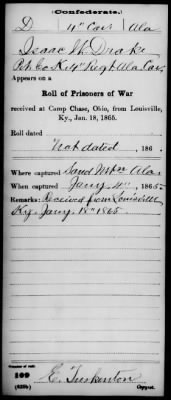 (Confederate.)
D 4" Cav. Ala
Isaac W. Drake
Pvt. Co. K 4" Regt Ala. Cav.
Appears on a
Roll of Prisoners of War
received at Camp Chase, Ohio, from Louisville,
Ky., Jan. 18, 1865.
Roll dated
Not dated, 186 .
Where captured Sand Mtn Ala.
When captured Jany 4", 1865.
Remarks: Received from Louisville
Ky. Jany. 18" 1865.
Number of roll:
109
(639b) Copyist.